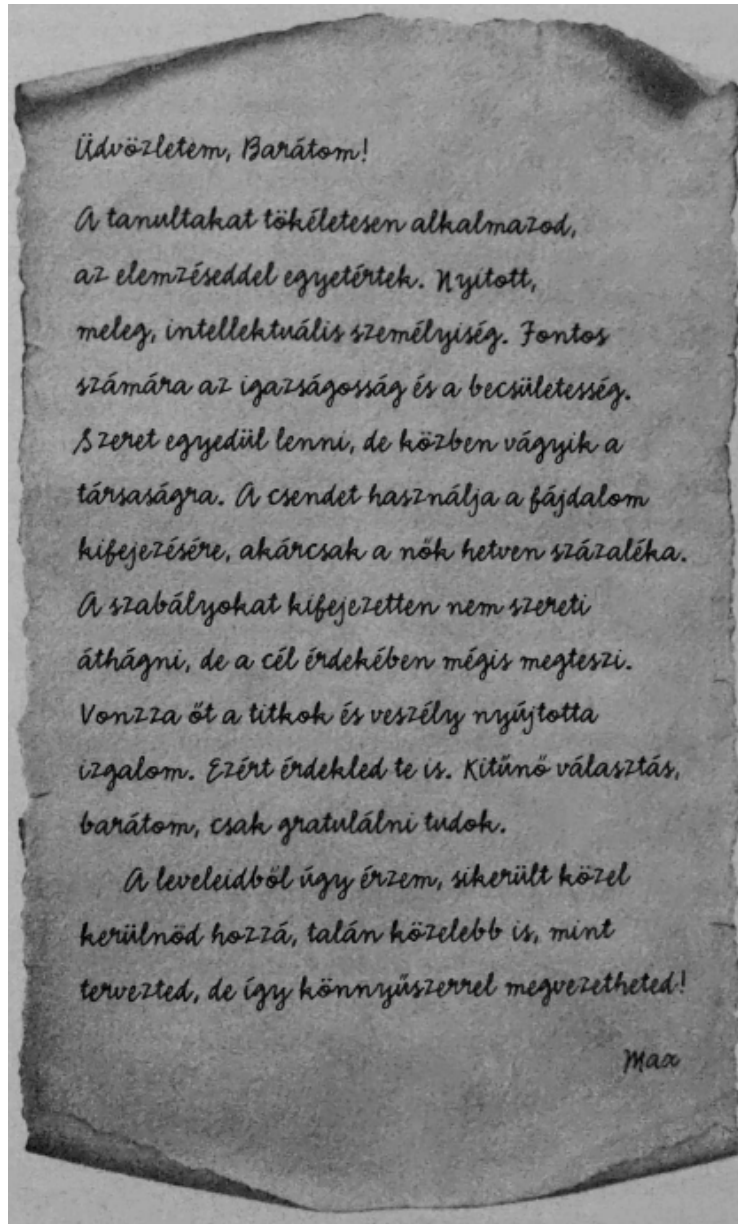 Üdvözletem, Barátom!
A tanultakat tökéletesen alkalmazod,
az elemzéseddel egyetértek. Nyitott,
meleg, intellektuális személyiség. Fontos
számára az igazságosság és a becsületesség.
Szeret egyedül lenni, de közben vágyik a
társaságra. A csendet használja a fájdalom
kifejezésére, akárcsak a nők hetven százaléka.
A szabályokat kifejezetten nem szereti
áthágni, de a cél érdekében mégis megteszi.
Vonzza őt a titkok és veszély nyújtotta
izgalom. Ezért érdekled te is. Kitűnő választás,
barátom, csak gratulálni tudok.
A leveleidből úgy érzem, sikerült közel
kerülnöd hozzá, talán közelebb is, mint
tervezted, de így könnyűszerrel megvezetheted!
Max